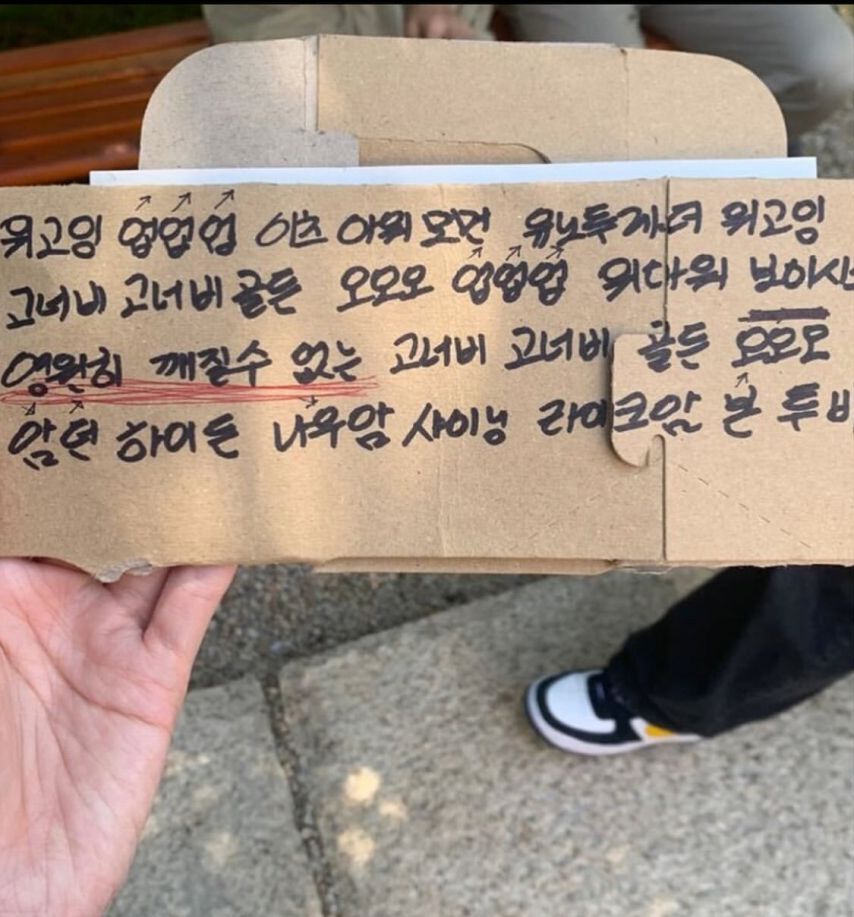 위고잉 업업업 이츠 아워 모먼 유노투게더 위고잉
고너비 고너비 골든 오오오 업업업 위다워 보이시
영원히 깨질수 없는 고너비 고너비 골든 오오오
암던 하이든 나우암 샤이닝 라이크암 본 투비